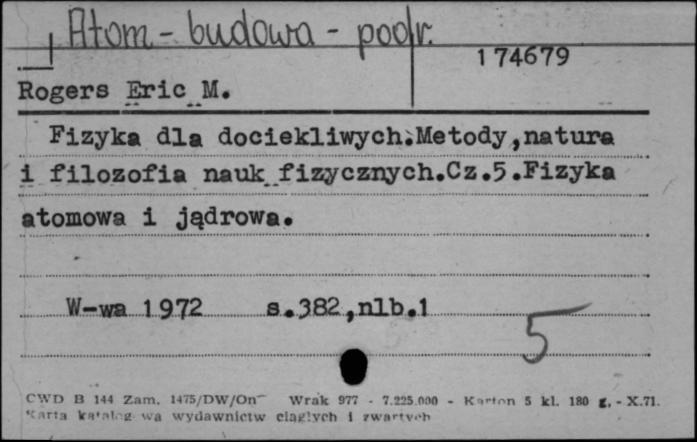 Atom - budowa - podr.
174679
Rogers Eric M.
Fizyka dla dociekliwych.Metody,natura
i filozofia nauk fizycznych.Cz.5.Fizyka
atomowa i jądrowa.
W-wa 1972 s.382,nlb.1
5
CWD B 144 Zam. 1475/DW/On Wrak 977 - 7.225.000 - Karton 5 kl. 180 g. - X.71.
Karta katalog-wa wydawnictw ciągłych i zwartych